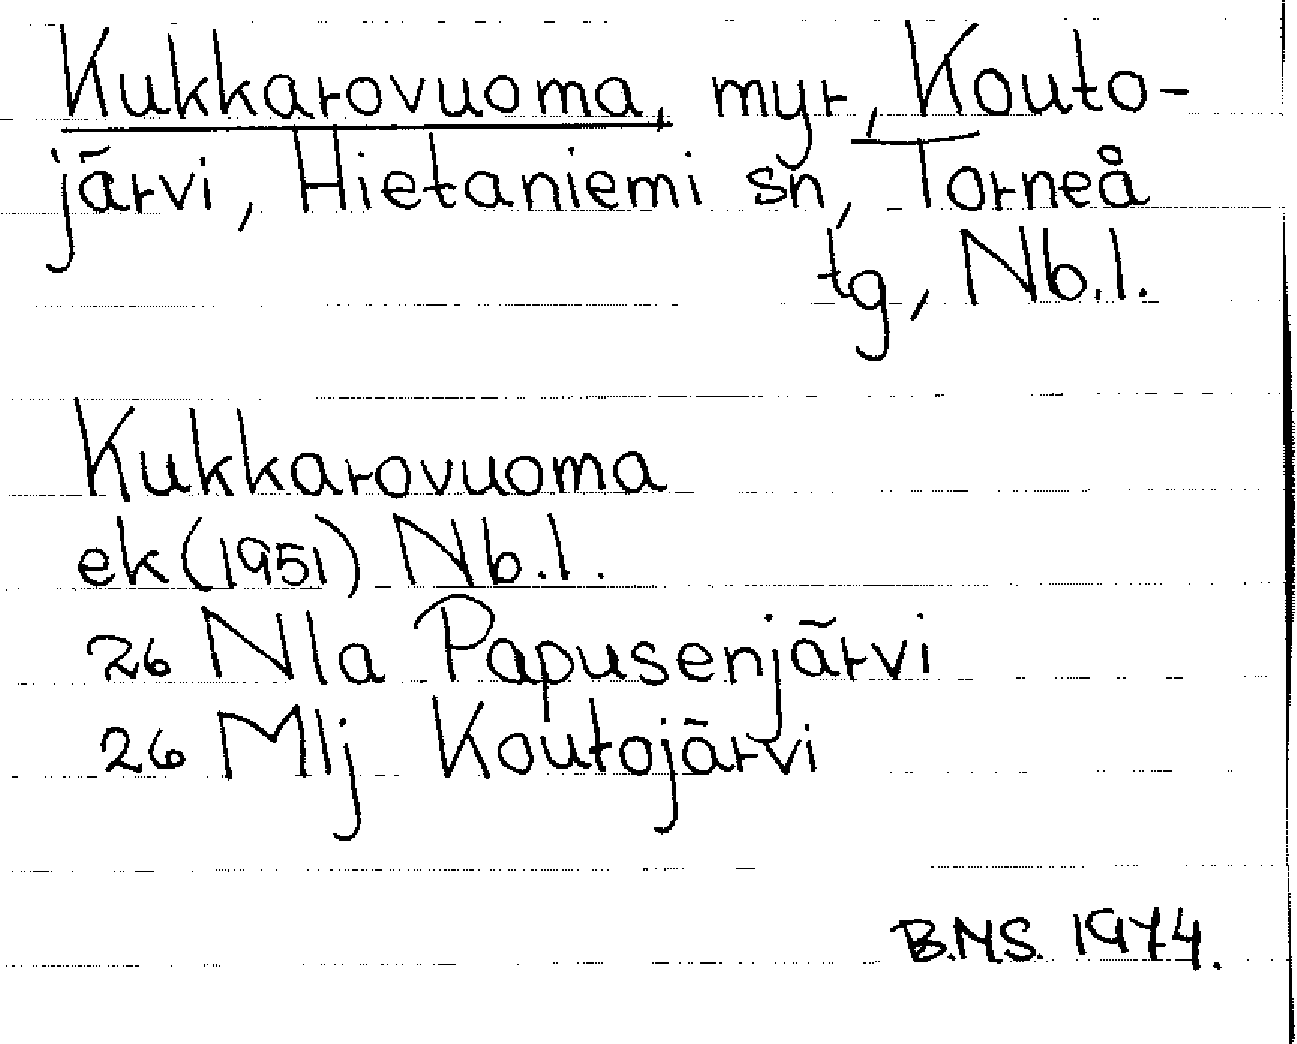 Kukkarovuoma, myr, Kouto-
järvi, Hietaniemi sn, Torneå
tg, Nb.l.
Kukkarovuoma
ek (1951) Nb.l.
26 Nla Papusenjärvi
26 Mlj Koutojärvi
B.N.S. 1974.